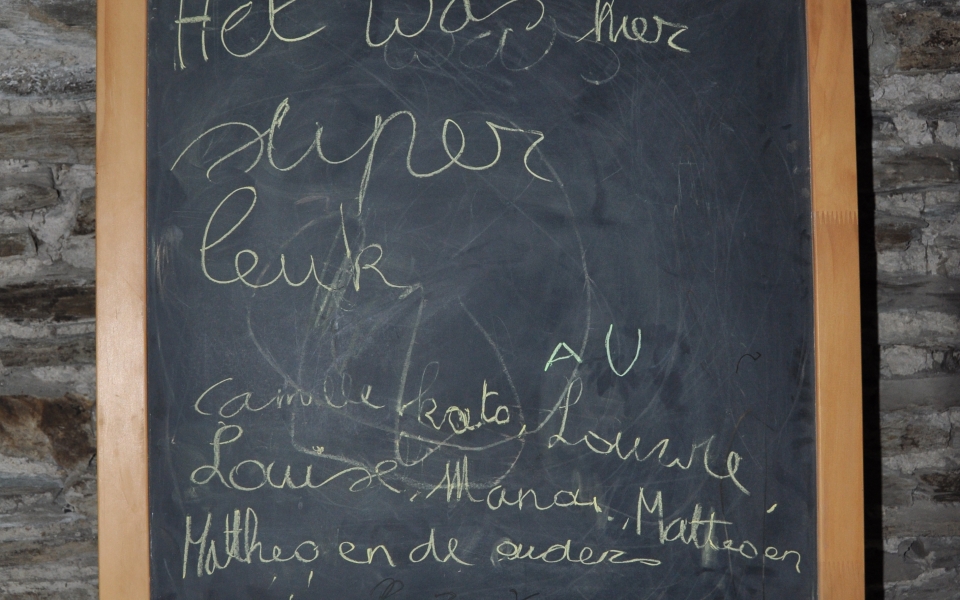 Het was hier
super
leuk
AU
Camille kato, Louvre
Louise, Manon, Matteo en
Mattheo en de ouders